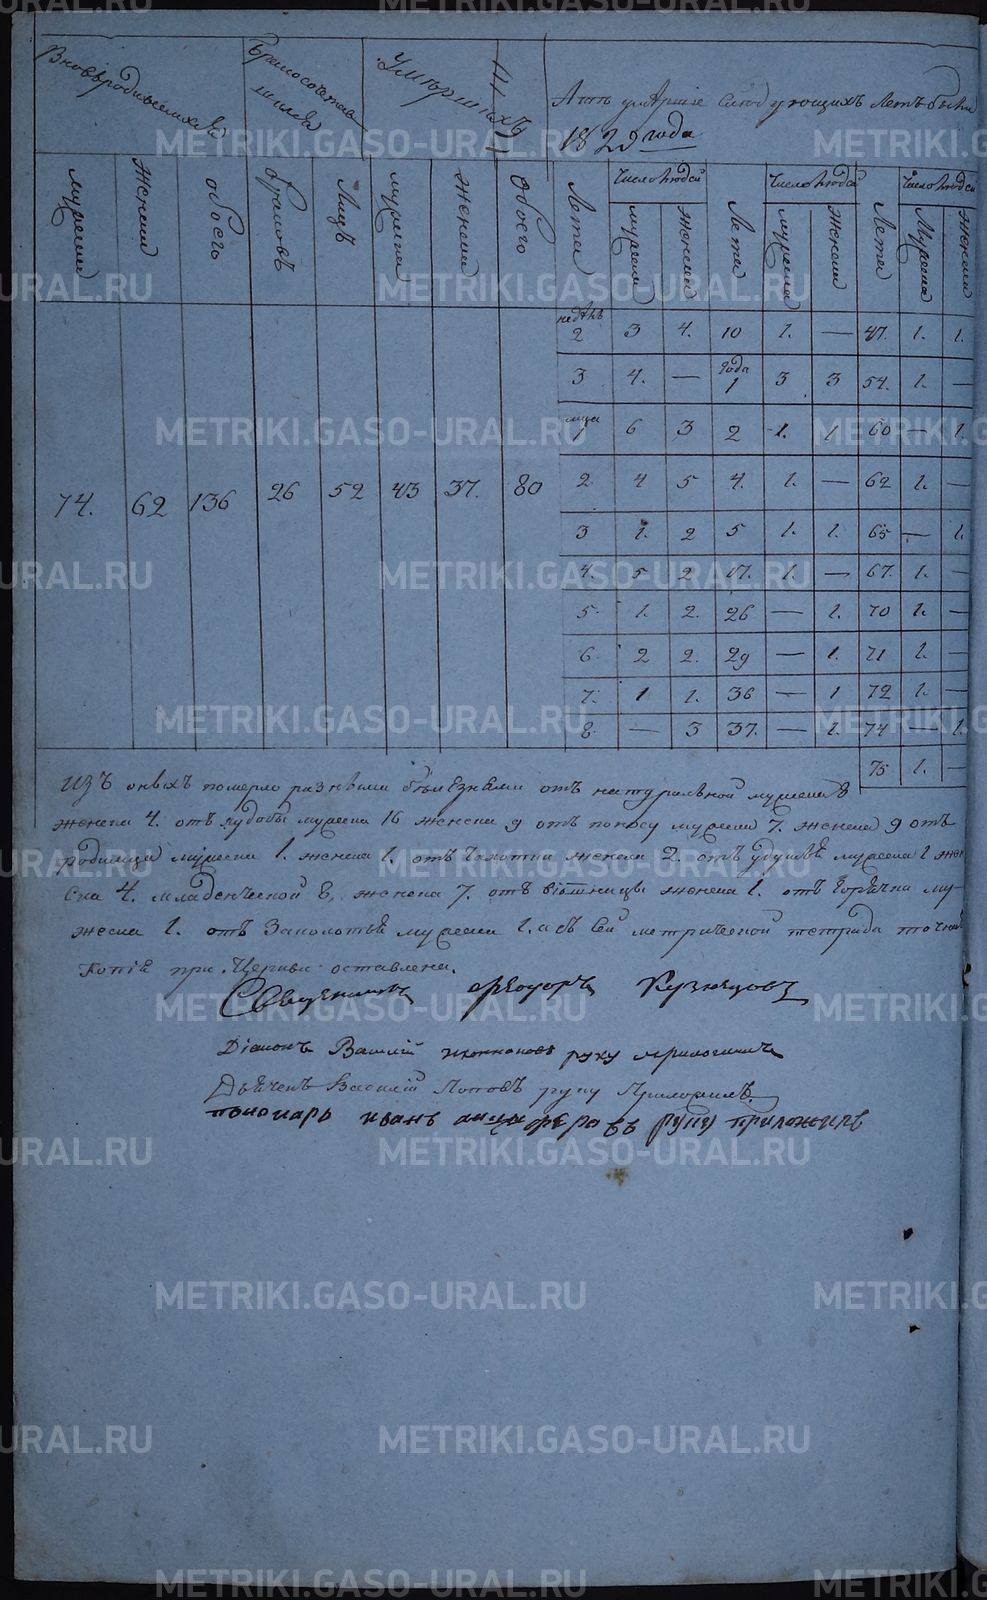 Вновьродившихся
Бракосочетав
шихся
Умершихъ
А тѣ умершіе слѣдующихъ летъ были
1820 года
мужеска
женска
обоего
браковъ
Лицъ
мужеска
женска
обоего
Лета
число людей
мужеска
женска
Лета
число людей
мужеска
женска
Лета
число людей
мужеска
женска
недѣль
2 3 4. 10 1. — 47. 1. 1.
3 4. — года 1 3 3 54. 1. —
мца
1 6 3 2 1. 1 60 — 1.
2 4 5 4. 1. — 62 1. —
74. 62 136 26 52 43 37. 80
3 1. 2 5 1. 1. 65 — 1.
4. 5 2 17. 1. — 67. 1. —
5 1. 2. 26 — 1. 70 1. —
6 2 2. 29 — 1. 71 1. —
7. 1 1. 36 — 1 72 1. —
8 — 3 37. — 1. 74 — 1.
75 1. —
Изъ оныхъ померло разными болезнями отъ натуральной мужеска 8
женска 4. отъ худобы мужеска 16 женска 9 отъ поносу мужеска 7. женска 9 отъ
родимца мужеска 1. женска 1. отъ чахотки женска 2. отъ удушья мужеска 1 жен
ска 4. младенческой 8, женска 7. отъ женска 1. отъ горячки му-
жеска 1. отъ мужеска 1. а съ сей метрической тетради точная
Копія при Церкви оставлена.
Священникъ Феодоръ Кузнецовъ
Діаконъ Василій руку приложилъ
Дьячекъ Василій Поповъ руку Приложилъ.
пономарь иванъ руку приложилъ
METRIKI.GASO-URAL.RU